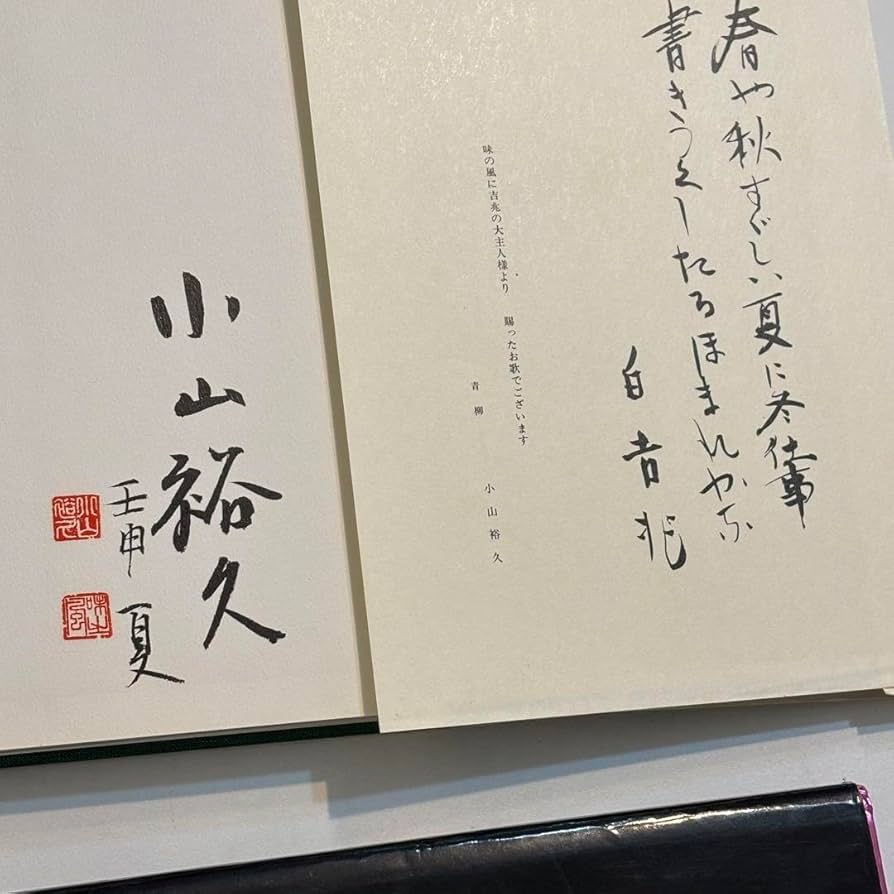 春や秋すゞしい夏に冬仕事
書きつくしたるほまれかな
白吉兆
味の風に吉兆の大主人様より　賜ったお歌でございます
青柳　小山裕久
小山裕久
壬申 夏
味風